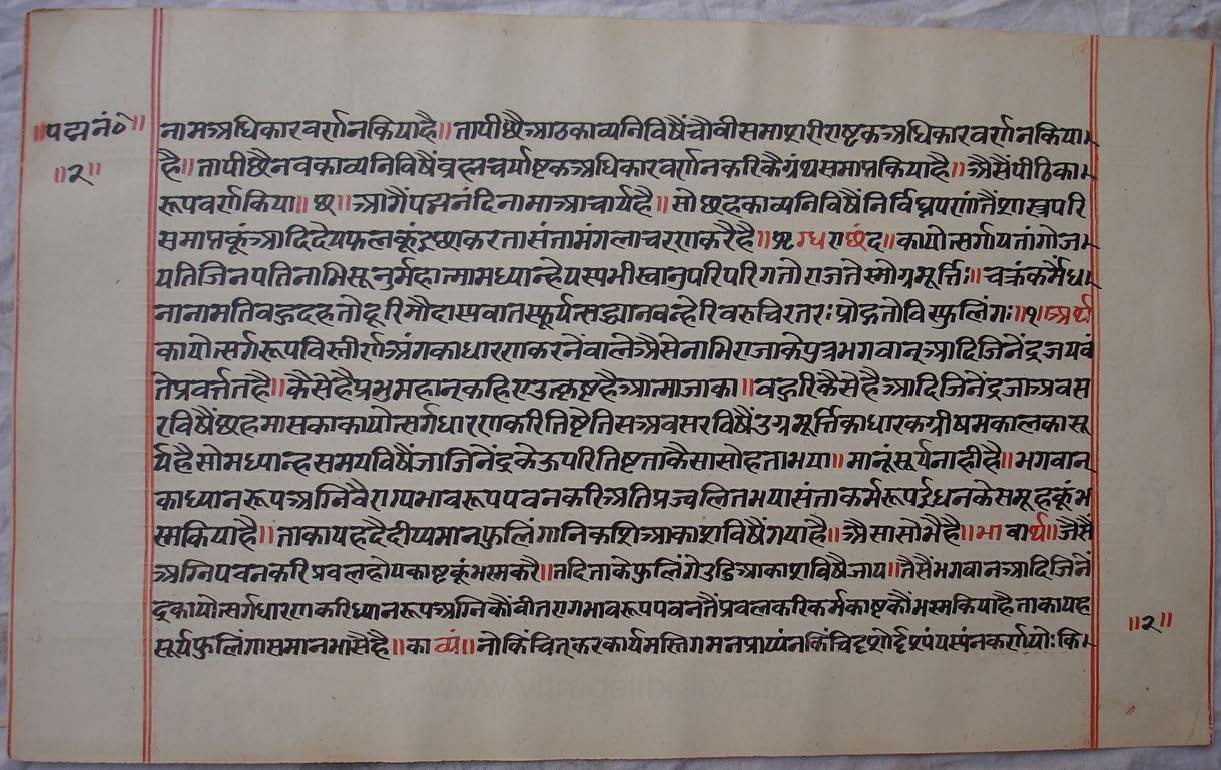 ॥पद्मनं०॥ नामअधिकारवर्णनकियाहै॥तापीछैआठकाव्यनिविषैंचौवीसमाशरीराष्टकअधिकारवर्णनकिया
॥२॥ है॥तापीछैनवकाव्यनिविषैंब्रह्मचर्याष्टकअधिकारवर्णनकरिकैग्रंथसमाप्तकियाहै॥अैसैंपीठिका
रूपवर्णकिया॥छ॥आगैंपद्मनंदिनामाआचार्यहै॥सोछहकाव्यनिविषैंनिर्विघ्नपणांतैंशास्त्रपरि
समाप्तकूंआदिदेयफलकूंइछाकरतासंतामंगलाचरणकरैहै॥स्रग्धराछंद॥कायोत्सर्गायतांगोज
यतिजिनपतिर्नाभिसूनुर्महात्मामध्यान्हेयस्यभास्वानुपरिपरिगतोराजतेस्मोग्रमूर्त्तिः॥चक्रंकर्मेंध
नानामतिबहुदहतोदूरमौदास्यवातस्फूर्यत्सद्ध्यानवन्हेरिवरुचिरतरःप्रोद्गतोविस्फुलिंगः॥१॥अर्थ
कायोत्सर्गरूपविस्तीर्णअंगकाधारणकरनेंवालेअैसेनाभिराजाकेपुत्रभगवान्आदिजिनेंद्रजयवं
तेप्रवर्त्ततहै॥कैसेहैप्रभुमहान्कहिएउत्कृष्टहैआत्माजाका॥बहुरिकैसेहैआदिजिनेंद्रजाअवस
रविषैंछहमासकाकायोत्सर्गधारणकरितिष्टैतिसअवसरविषैंउग्रमूर्त्तिकाधारकग्रीषमकालकासू
र्यहैसोमध्यान्हसमयविषैंजाजिनेंद्रकेऊपरितिष्टताकैसासोहताभया॥मानूंसूर्यनाहीहै॥भगवान्
काध्यानरूपअग्निवैराग्यभावरूपपवनकरिअतिप्रज्वलितभयासंताकर्मरूपईंधनकेसमूहकूंभ
स्मकियाहै॥ताकायहदैदीप्यमानफुलिंगानिकशिआकाशविषैंगयाहै॥अैसासोभैहै॥भावार्थ॥जैसैं
अग्निपवनकरिप्रबलहोयकाष्टकूंभस्मकरै॥तदिताकेफुलिंगेउडिआकाशविषैजाय॥तैसैंभगवानआदिजिनें
द्रकायोत्सर्गधारणकरिध्यानरूपअग्निकौंवीतरागभावरूपपवनतैंप्रबलकरिकर्मकाष्टकौंभस्मकियाहैताकायह
सूर्यफुलिंगासमानभासैहै॥काव्यं॥नोकिंचित्करकार्यमस्तिगमनप्राप्यंनकिंचिद्दृशोर्दृश्यंयस्यनकर्णयोःकि
॥२॥